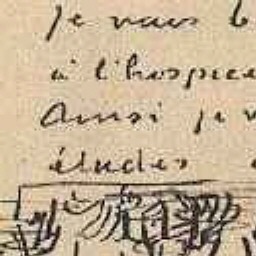 je vais b
à l'hospice
Ainsi je v
études